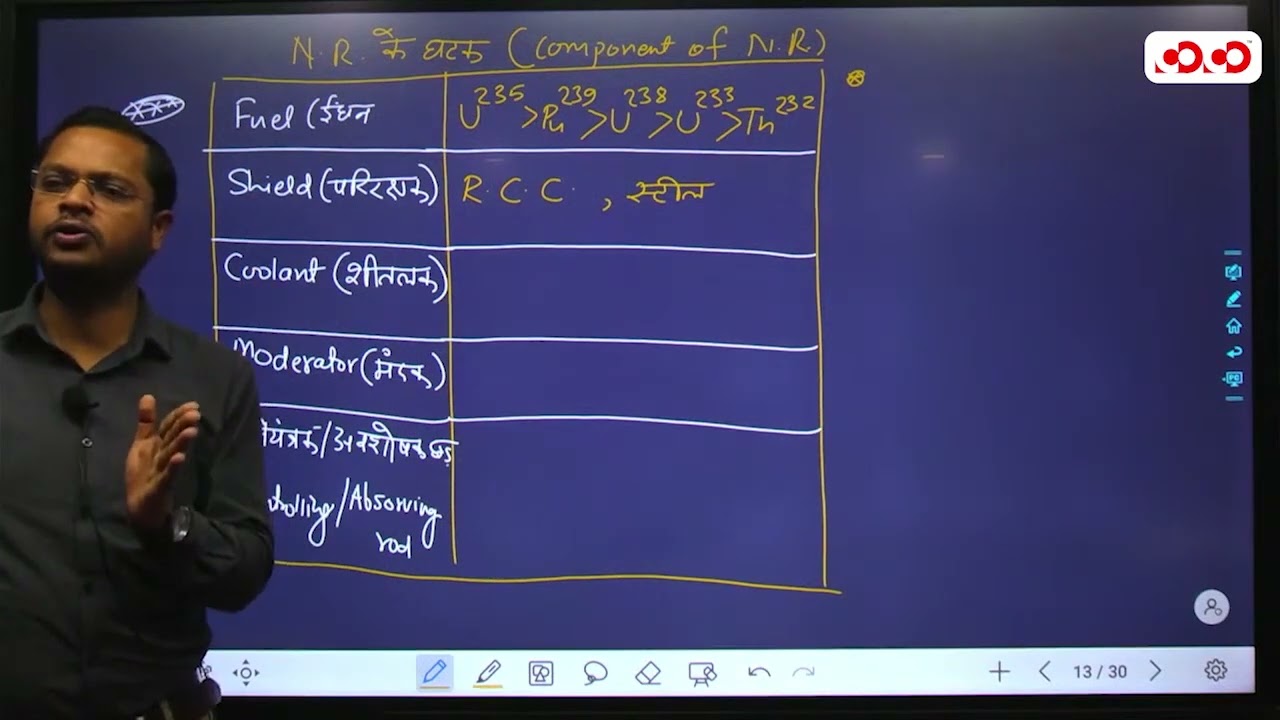 N.R. के घटक (Component of N.R.)
Fuel (ईंधन
U235 > Pu239 > U238 > U233 > Th232
Shield (परिरक्षक)
R.C.C. , स्टील
Coolant (शीतलक)
Moderator (मंदक)
/अवशोषक छड़
/Absorving
rod
13 / 30